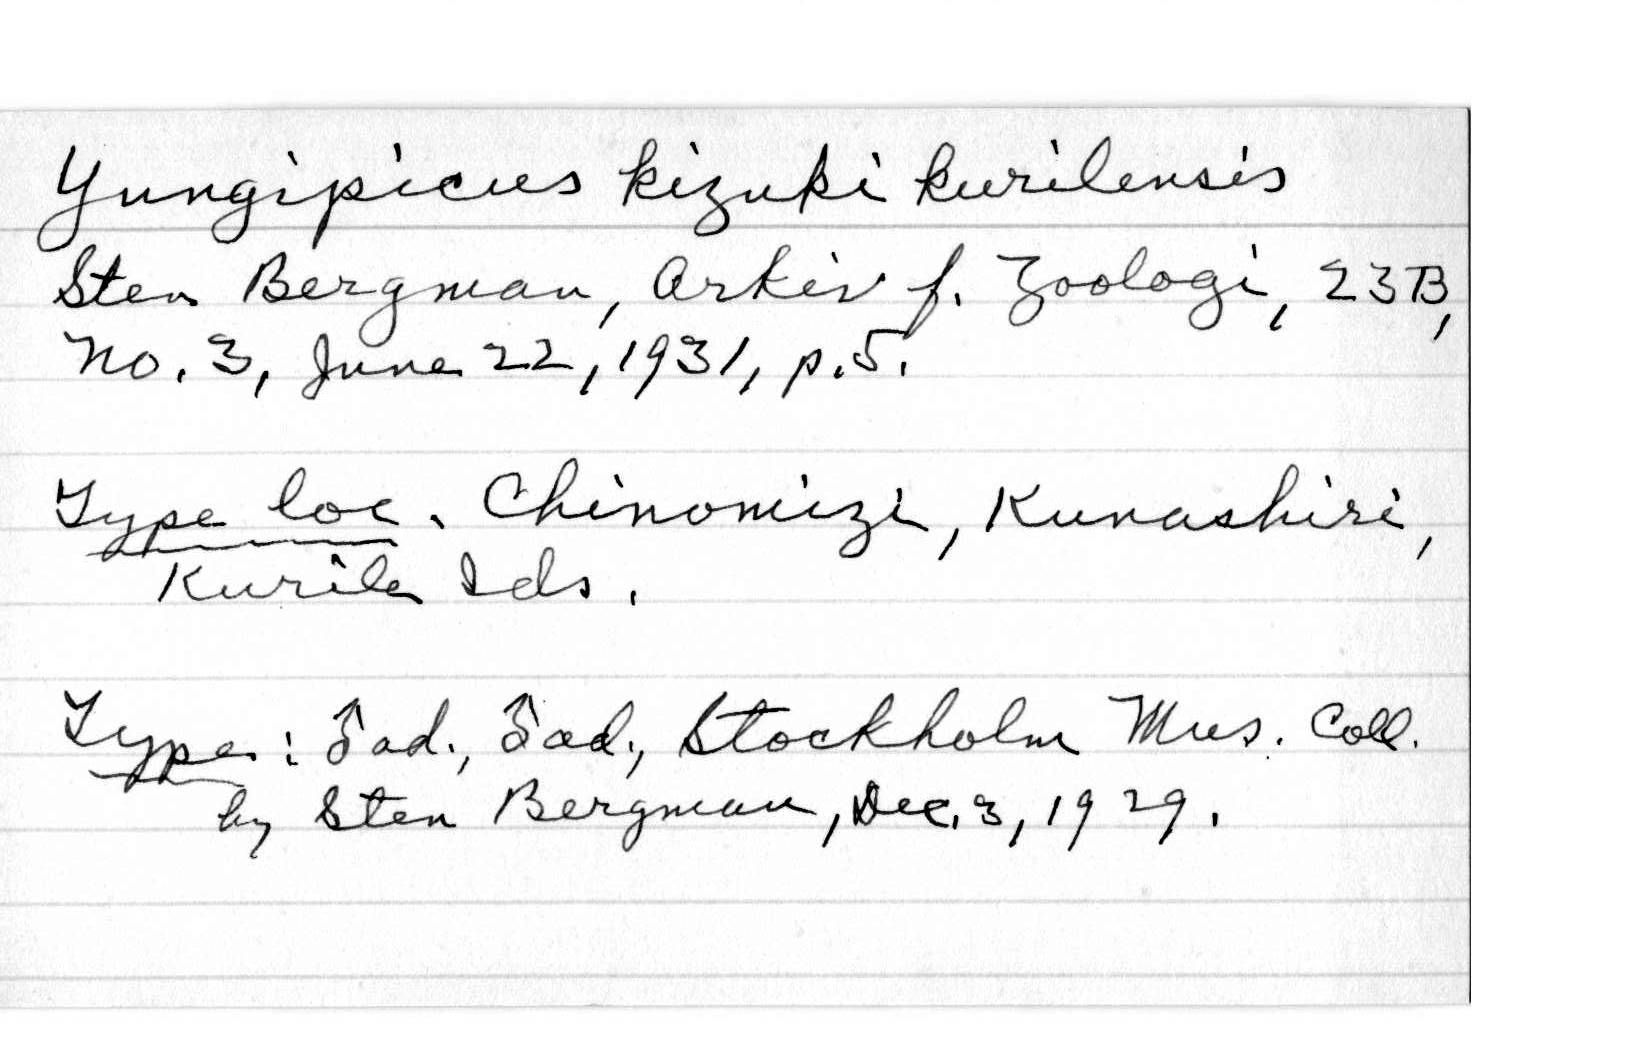 Yungipicus kizuki kurilensis
Sten Bergman, Arkiv f. Zoologi, 23B,
No. 3, June 22, 1931, p. 5.
Type loc. Chinomizi, Kunashiri,
Kurile Ids.
Type: ♂ ad., ♂ ad., Stockholm Mus. Coll.
by Sten Bergman, Dec. 3, 1929.